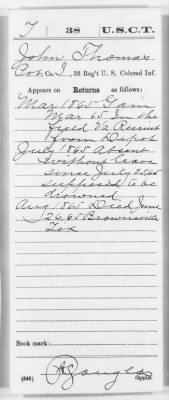 T 38 U.S.C.T.
John Thomas
Pvt, Co. I, 38 Reg't U. S. Colored Inf.
Appears on Returns as follows:
Mar 1865 Gain
Mar 65 In the
field Va Recruit
from Depot
July 1865 Absent
without leave
since July 25/65
supposed to be
drowned
Aug 1865 Died June
26.65 Brownsville
Tex
Book mark:
(546) Copyist.